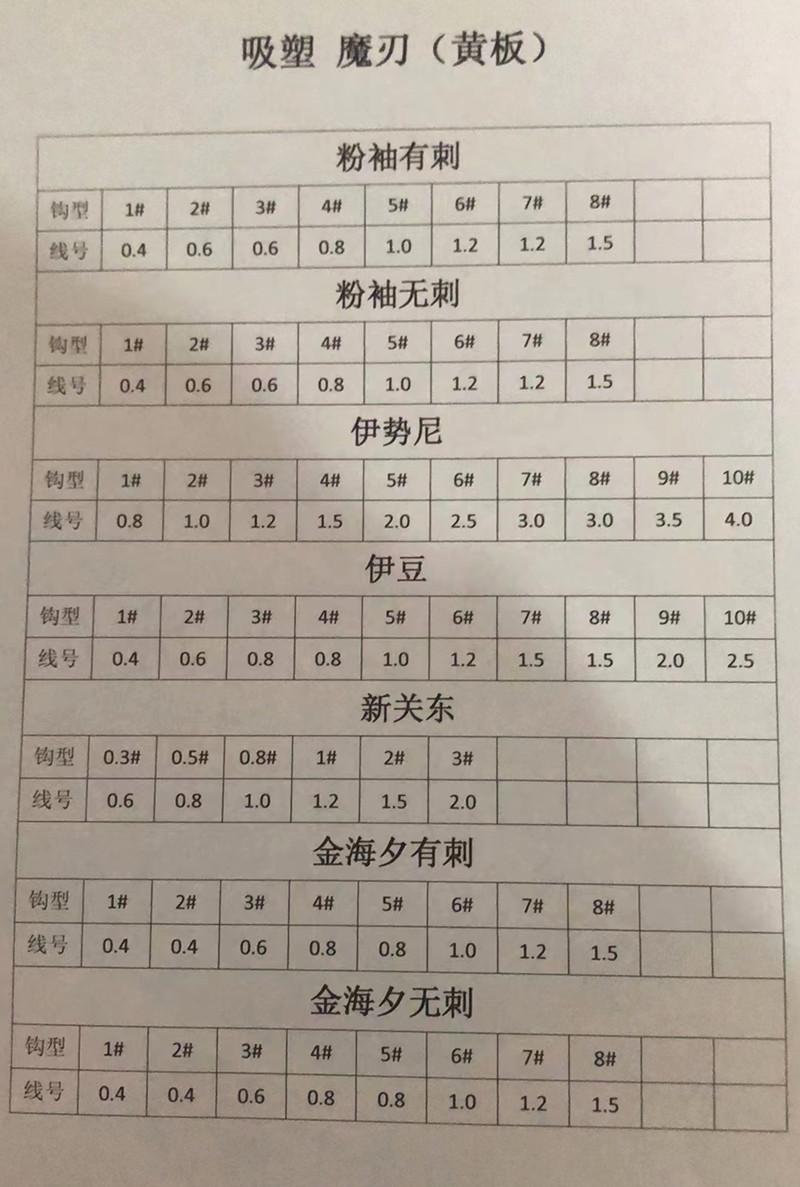 吸塑 魔刃（黄板）
粉袖有刺
钩型 1# 2# 3# 4# 5# 6# 7# 8#
线号 0.4 0.6 0.6 0.8 1.0 1.2 1.2 1.5
粉袖无刺
钩型 1# 2# 3# 4# 5# 6# 7# 8#
线号 0.4 0.6 0.6 0.8 1.0 1.2 1.2 1.5
伊势尼
钩型 1# 2# 3# 4# 5# 6# 7# 8# 9# 10#
线号 0.8 1.0 1.2 1.5 2.0 2.5 3.0 3.0 3.5 4.0
伊豆
钩型 1# 2# 3# 4# 5# 6# 7# 8# 9# 10#
线号 0.4 0.6 0.8 0.8 1.0 1.2 1.5 1.5 2.0 2.5
新关东
钩型 0.3# 0.5# 0.8# 1# 2# 3#
线号 0.6 0.8 1.0 1.2 1.5 2.0
金海夕有刺
钩型 1# 2# 3# 4# 5# 6# 7# 8#
线号 0.4 0.4 0.6 0.8 0.8 1.0 1.2 1.5
金海夕无刺
钩型 1# 2# 3# 4# 5# 6# 7# 8#
线号 0.4 0.4 0.6 0.8 0.8 1.0 1.2 1.5